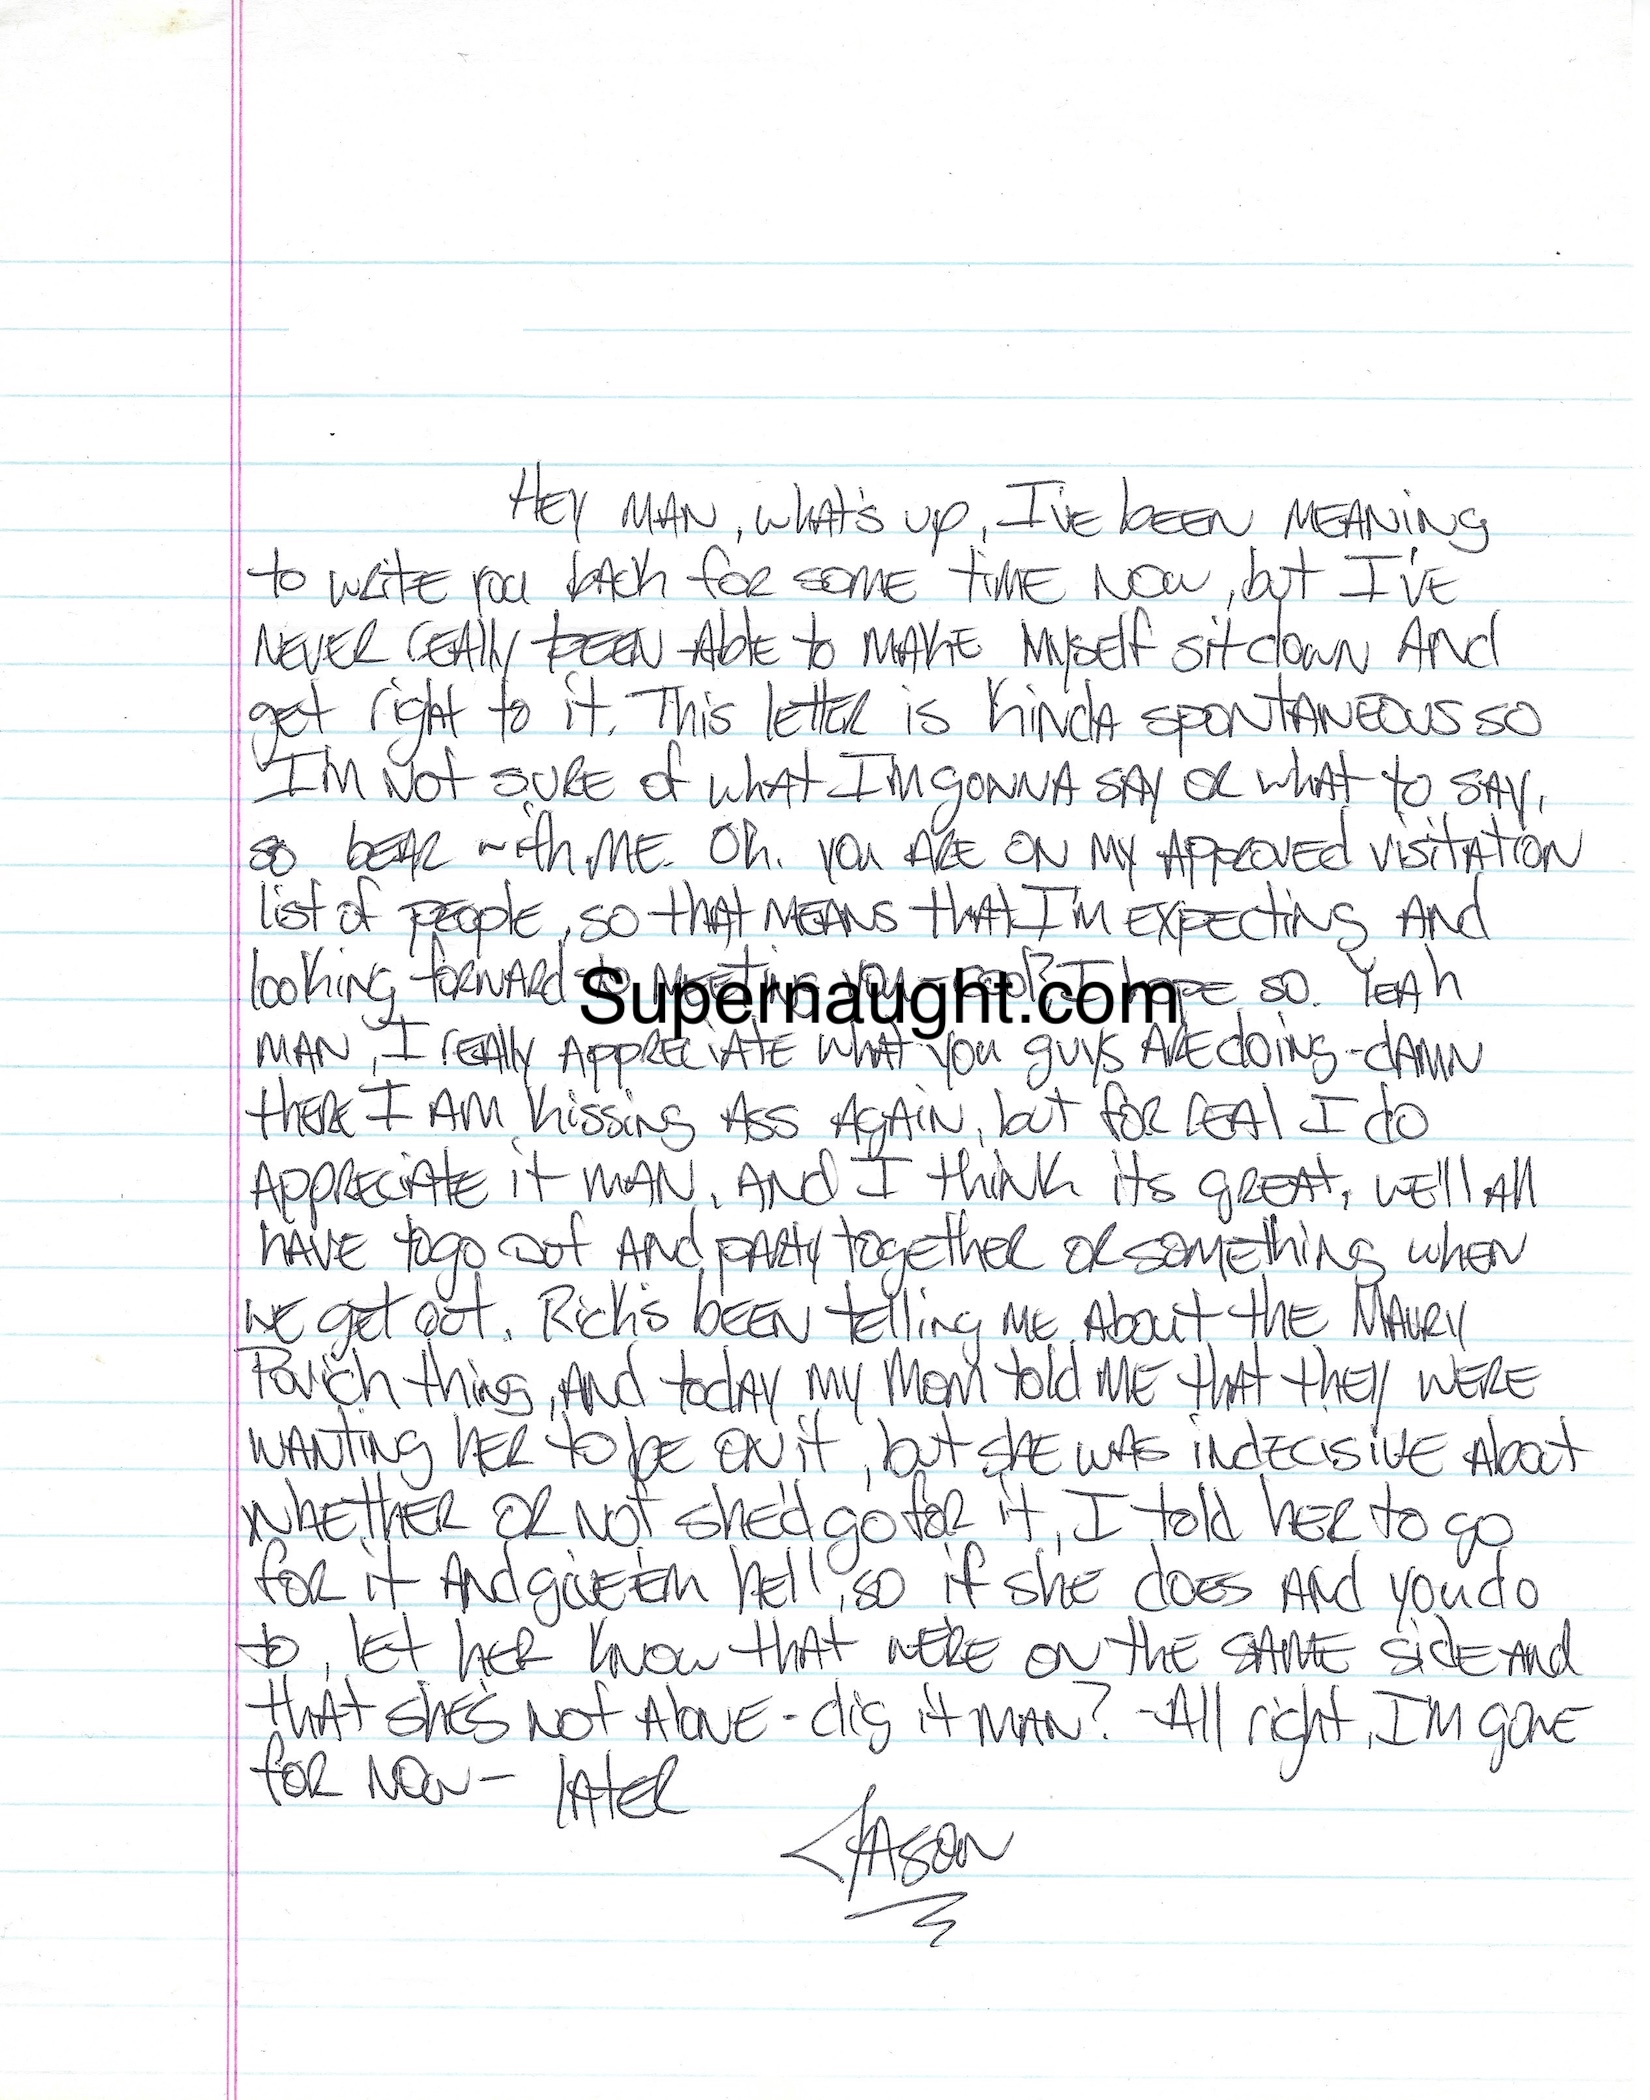 Hey man, what's up, I've been meaning
to write you back for some time now, but I've
never really been able to make myself sit down and
get right to it. This letter is kinda spontaneous so
I'm not sure of what I'm gonna say or what to say,
so bear with me. Oh. you are on my approved visitation
list of people, so that means that I'm expecting and
looking forward to meeting you - cool? I hope so. Yeah
Supernaught.com
man, I really appreciate what you guys are doing - damn
there I am kissing ass again, but for real I do
appreciate it man, and I think its great, we'll all
have to go out and party together or something when
we get out. Rick's been telling me about the Maury
Povich thing, and today my mom told me that they were
wanting her to be on it, but she was indecisive about
whether or not she'd go for it, I told her to go
for it and give em hell, so if she does and you do
to, let her know that we're on the same side and
that she's not alone - dig it man? - All right, I'm gone
for now - later
Jason